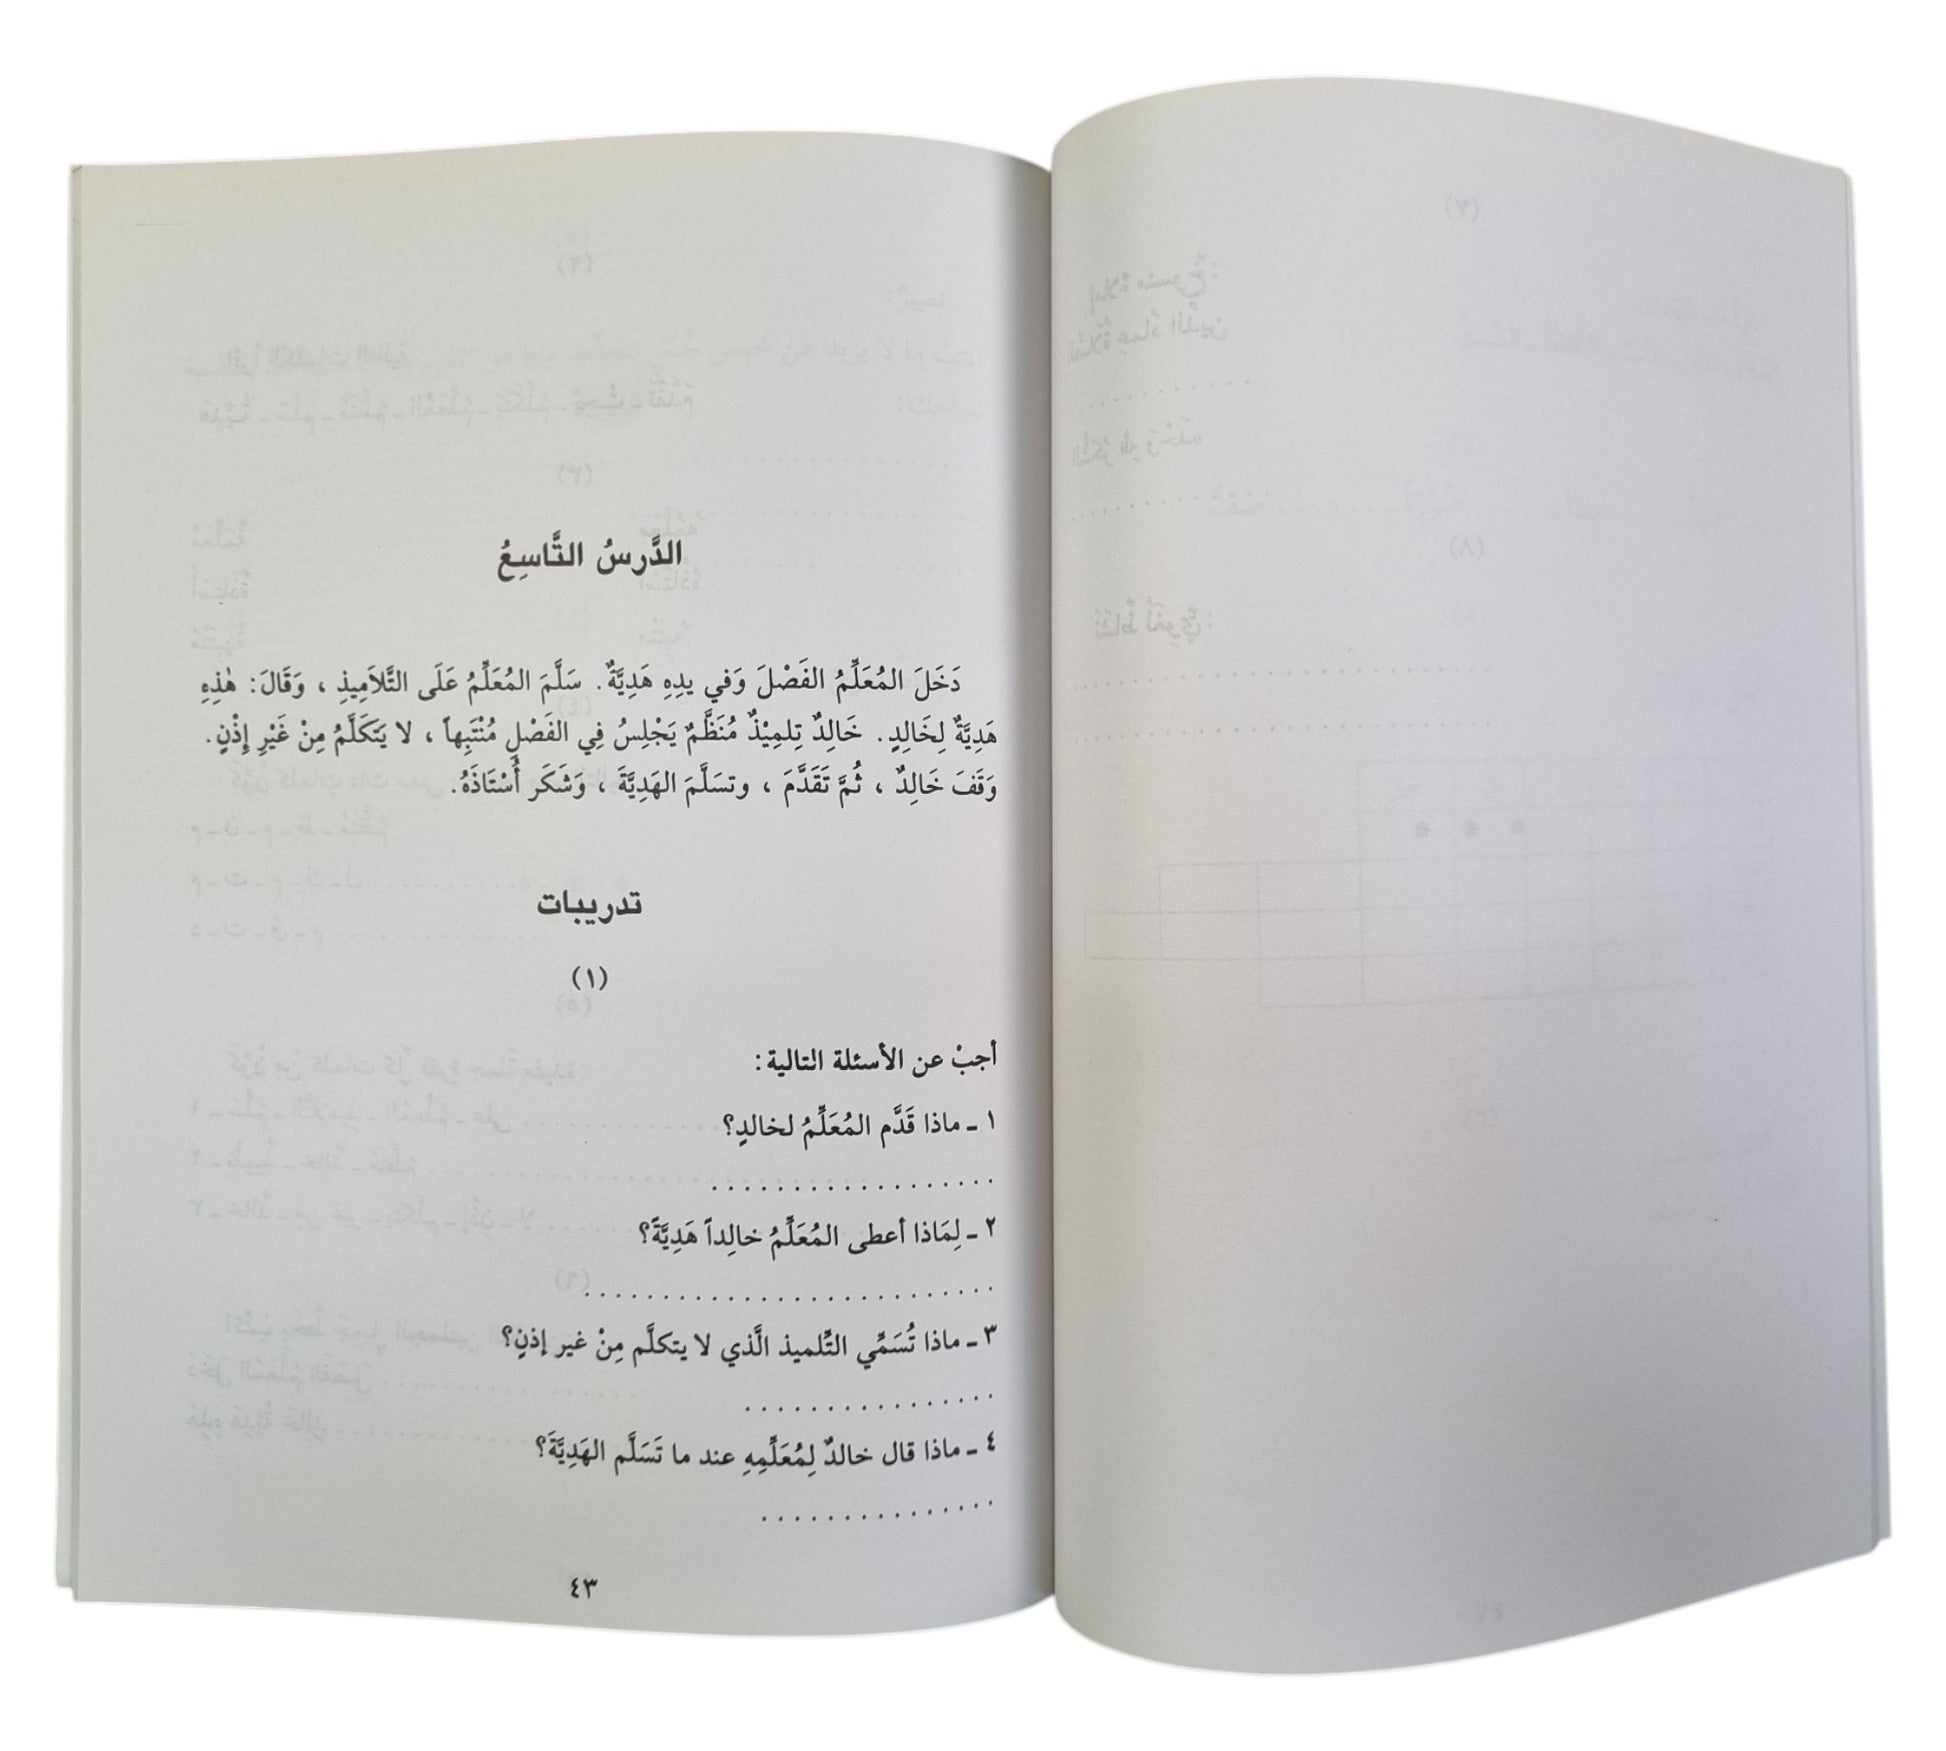 الدَّرسُ التَّاسِعُ
دَخَلَ المُعَلِّمُ الفَصْلَ وَفي يدِهِ هَدِيَّةٌ. سَلَّمَ المُعَلِّمُ عَلَى التَّلاَمِيذِ ، وَقَالَ: هٰذِهِ
هَدِيَّةٌ لِخَالِدٍ. خَالِدٌ تِلمِيْذٌ مُنَظَّمٌ يَجْلِسُ فِي الفَصْلِ مُنْتَبِهاً ، لا يَتَكَلَّمُ مِنْ غَيْرِ إِذْنٍ.
وَقَفَ خَالِدٌ ، ثُمَّ تَقَدَّمَ ، وتسَلَّمَ الهَدِيَّةَ ، وَشَكَر أُسْتَاذَهُ.
تدريبات
(١)
أجبْ عن الأسئلة التالية:
١ ـ ماذا قَدَّم المُعَلِّمُ لخالدٍ؟
..................
٢ ـ لِمَاذا أعطى المُعَلِّمُ خالِداً هَدِيَّةً؟
..........................
٣ ـ ماذا تُسَمِّي التِّلميذ الَّذي لا يتكلَّم مِنْ غير إذنٍ؟
................
٤ ـ ماذا قال خالدٌ لِمُعَلِّمِهِ عند ما تَسَلَّم الهَدِيَّةَ؟
...............
٤٣